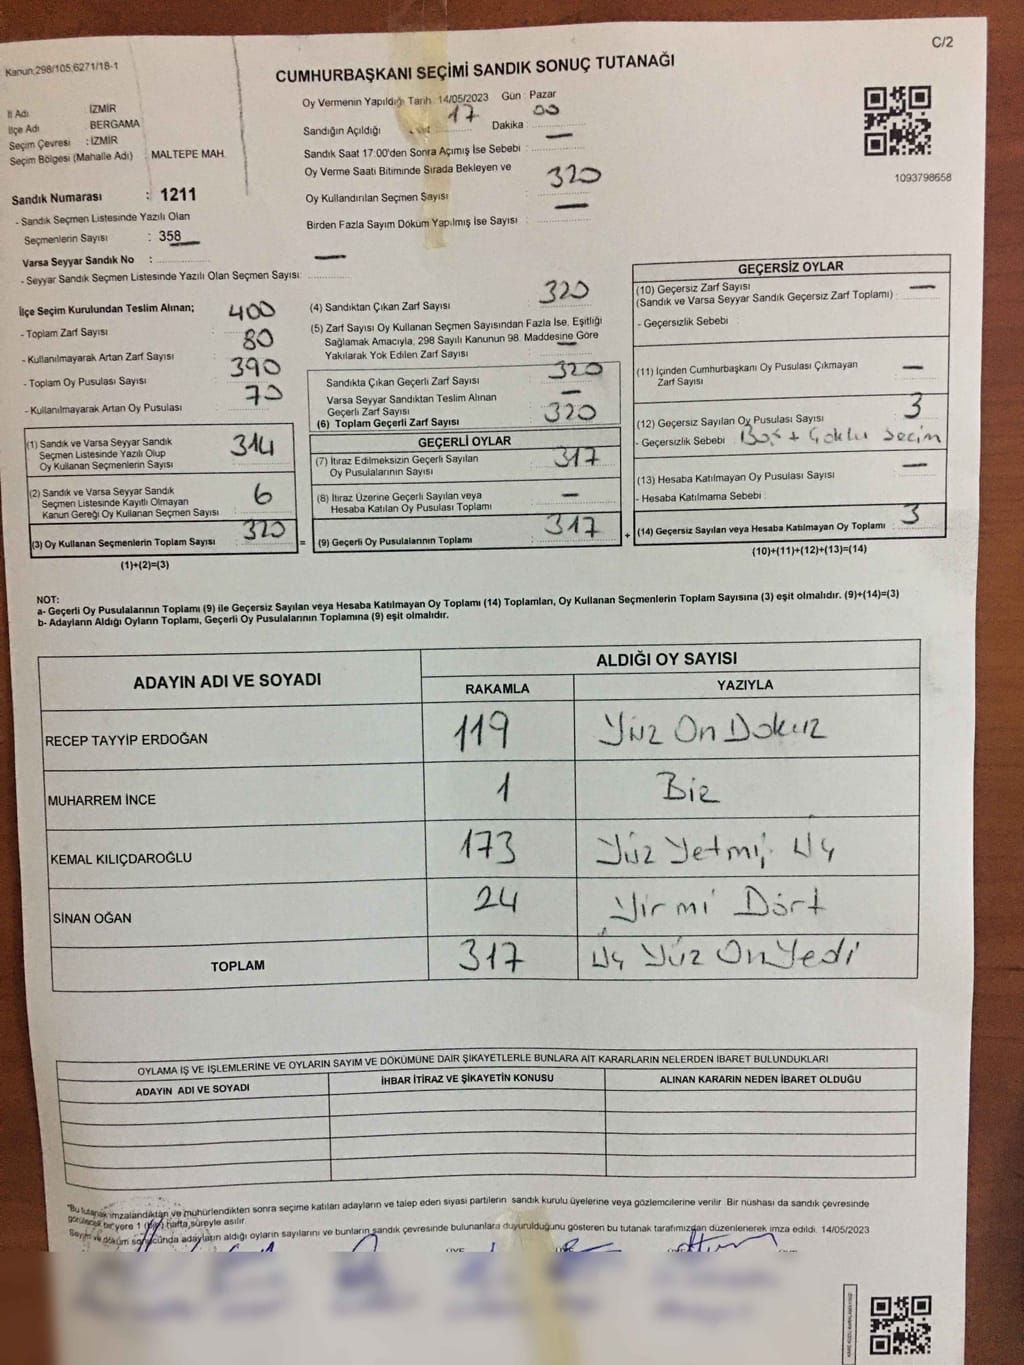 C/2
Kanun;298/105,6271/18-1
CUMHURBAŞKANI SEÇİMİ SANDIK SONUÇ TUTANAĞI
İl Adı : İZMİR
İlçe Adı : BERGAMA
Seçim Çevresi : İZMİR
Seçim Bölgesi (Mahalle Adı) : MALTEPE MAH.
Sandık Numarası : 1211
- Sandık Seçmen Listesinde Yazılı Olan
Seçmenlerin Sayısı : 358
Varsa Seyyar Sandık No : —
- Seyyar Sandık Seçmen Listesinde Yazılı Olan Seçmen Sayısı:
Oy Vermenin Yapıldığı Tarih: 14/05/2023 Gün : Pazar
Sandığın Açıldığı 17 Dakika : 00
Sandık Saat 17:00'den Sonra Açımış İse Sebebi : —
Oy Verme Saati Bitiminde Sırada Bekleyen ve
Oy Kullandırılan Seçmen Sayısı : 320
Birden Fazla Sayım Döküm Yapılmış İse Sayısı : —
1093798658
İlçe Seçim Kurulundan Teslim Alınan;
- Toplam Zarf Sayısı : 400
- Kullanılmayarak Artan Zarf Sayısı : 80
- Toplam Oy Pusulası Sayısı : 390
- Kullanılmayarak Artan Oy Pusulası : 70
(1) Sandık ve Varsa Seyyar Sandık
Seçmen Listesinde Yazılı Olup
Oy Kullanan Seçmenlerin Sayısı : 314
(2) Sandık ve Varsa Seyyar Sandık
Seçmen Listesinde Kayıtlı Olmayan
Kanun Gereği Oy Kullanan Seçmen Sayısı : 6
(3) Oy Kullanan Seçmenlerin Toplam Sayısı : 320 =
(1)+(2)=(3)
(4) Sandıktan Çıkan Zarf Sayısı : 320
(5) Zarf Sayısı Oy Kullanan Seçmen Sayısından Fazla İse, Eşitliği
Sağlamak Amacıyla, 298 Sayılı Kanunun 98. Maddesine Göre
Yakılarak Yok Edilen Zarf Sayısı : —
Sandıkta Çıkan Geçerli Zarf Sayısı : 320
Varsa Seyyar Sandıktan Teslim Alınan
Geçerli Zarf Sayısı : —
(6) Toplam Geçerli Zarf Sayısı : 320
GEÇERLİ OYLAR
(7) İtiraz Edilmeksizin Geçerli Sayılan
Oy Pusulalarının Sayısı : 317
(8) İtiraz Üzerine Geçerli Sayılan veya
Hesaba Katılan Oy Pusulası Toplamı : —
(9) Geçerli Oy Pusulalarının Toplamı : 317 +
GEÇERSİZ OYLAR
(10) Geçersiz Zarf Sayısı
(Sandık ve Varsa Seyyar Sandık Geçersiz Zarf Toplamı) : —
- Geçersizlik Sebebi :
(11) İçinden Cumhurbaşkanı Oy Pusulası Çıkmayan
Zarf Sayısı : —
(12) Geçersiz Sayılan Oy Pusulası Sayısı : 3
- Geçersizlik Sebebi : Boş + Çoklu Seçim
(13) Hesaba Katılmayan Oy Pusulası Sayısı : —
- Hesaba Katılmama Sebebi :
(14) Geçersiz Sayılan veya Hesaba Katılmayan Oy Toplamı : 3
(10)+(11)+(12)+(13)=(14)
NOT:
a- Geçerli Oy Pusulalarının Toplamı (9) ile Geçersiz Sayılan veya Hesaba Katılmayan Oy Toplamı (14) Toplamları, Oy Kullanan Seçmenlerin Toplam Sayısına (3) eşit olmalıdır. (9)+(14)=(3)
b- Adayların Aldığı Oyların Toplamı, Geçerli Oy Pusulalarının Toplamına (9) eşit olmalıdır.
ADAYIN ADI VE SOYADI ALDIĞI OY SAYISI
RAKAMLA YAZIYLA
RECEP TAYYİP ERDOĞAN 119 Yüz On Dokuz
MUHARREM İNCE 1 Bir
KEMAL KILIÇDAROĞLU 173 Yüz Yetmiş Üç
SİNAN OĞAN 24 Yirmi Dört
TOPLAM 317 Üç Yüz On Yedi
OYLAMA İŞ VE İŞLEMLERİNE VE OYLARIN SAYIM VE DÖKÜMÜNE DAİR ŞİKAYETLERLE BUNLARA AİT KARARLARIN NELERDEN İBARET BULUNDUKLARI
ADAYIN ADI VE SOYADI İHBAR İTİRAZ VE ŞİKAYETİN KONUSU ALINAN KARARIN NEDEN İBARET OLDUĞU
"Bu tutanak imzalandıktan ve mühürlendikten sonra seçime katılan adayların ve talep eden siyasi partilerin sandık kurulu üyelerine veya gözlemcilerine verilir. Bir nüshası da sandık çevresinde
görülecek bir yere 1 (bir) hafta süreyle asılır.
Sayım ve döküm sonucunda adayların aldığı oyların sayılarını ve bunların sandık çevresinde bulunanlara duyurulduğunu gösteren bu tutanak tarafımızdan düzenlenerek imza edildi. 14/05/2023